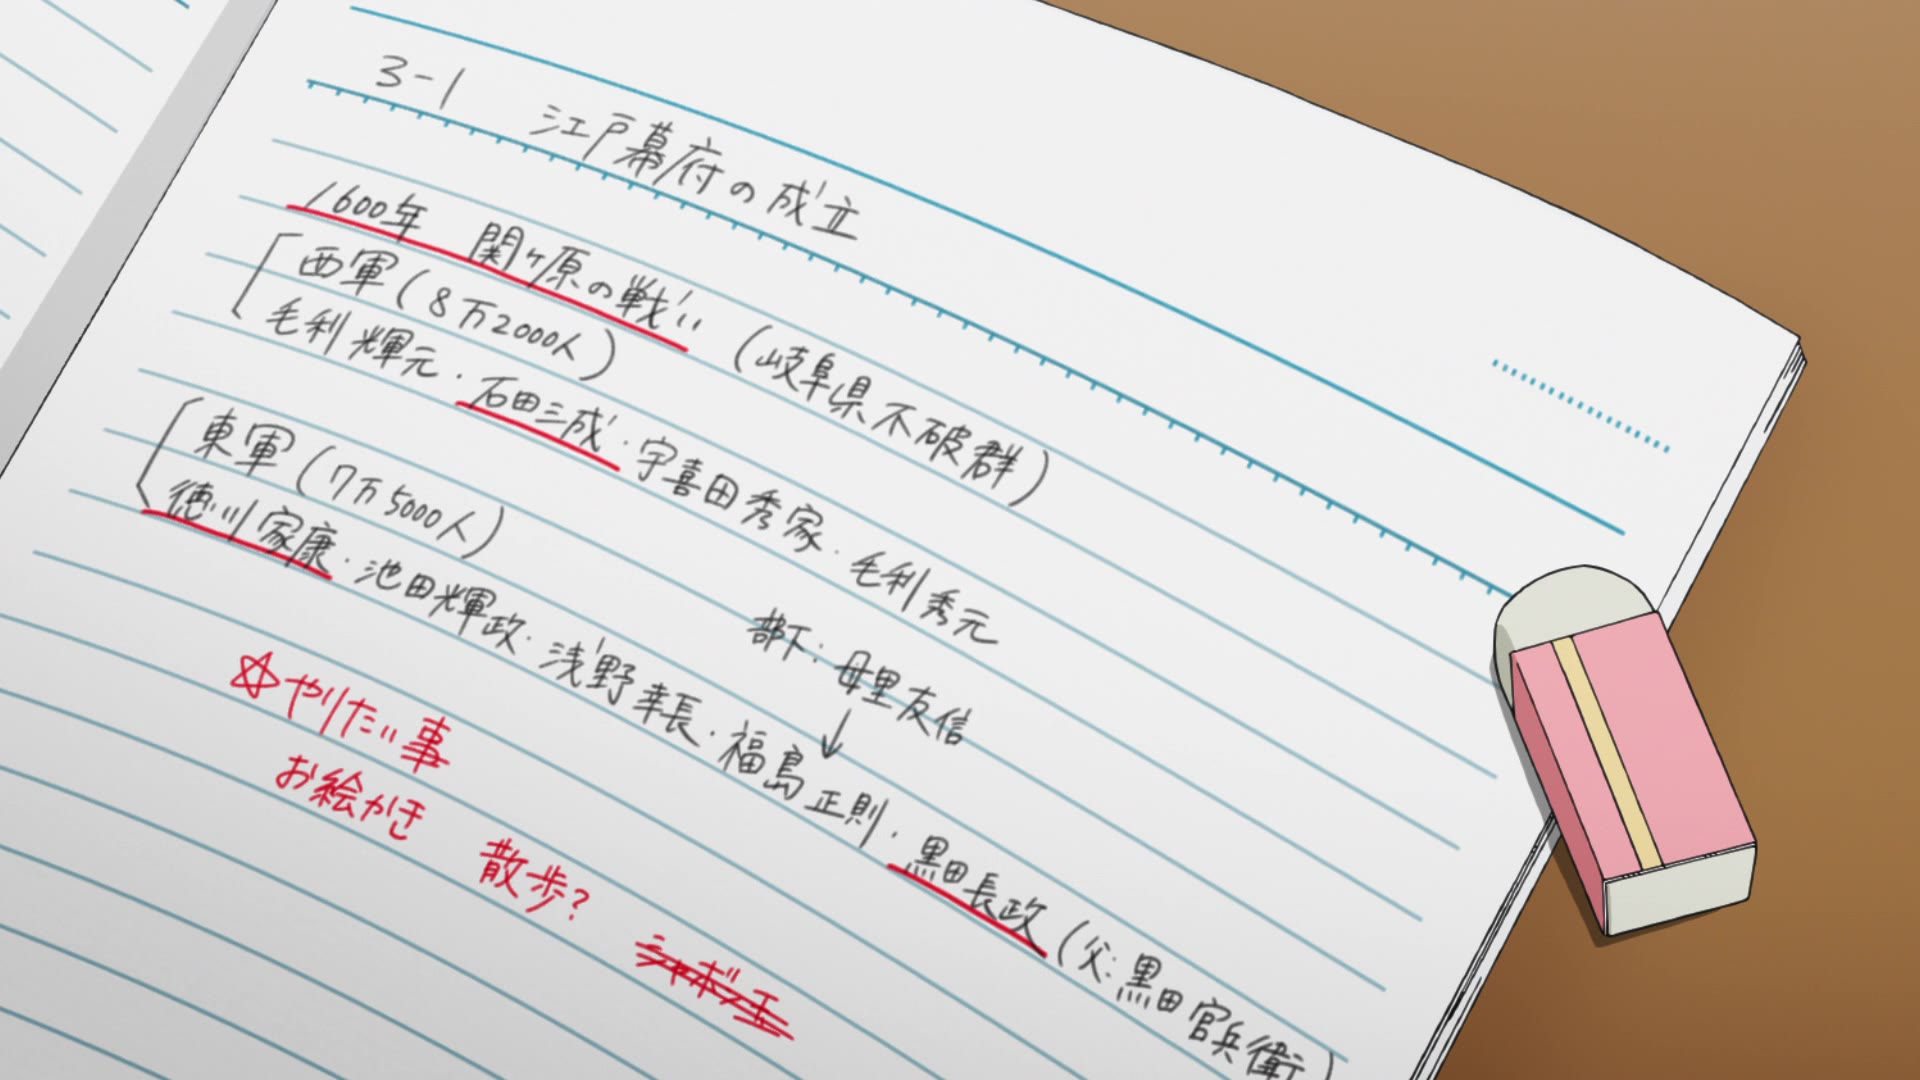 3-1 江戸幕府の成立
1600年 関ヶ原の戦い (岐阜県不破群)
西軍(8万2000人)
毛利輝元・石田三成・宇喜田秀家・毛利秀元
東軍(7万5000人)
部下:母里友信
↓
徳川家康・池田輝政・浅野幸長・福島正則・黒田長政(父:黒田官兵衛)
☆やりたい事
お絵かき 散歩? シャボン玉